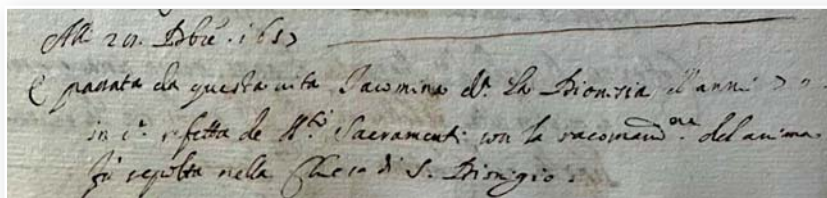 Alli 29. Xbre. 1657
È passata da questa vita Jacomina d.a La Dionisia d'anni 77
in c.a refetta de SS.ti Sacramenti con la racomand.ne del anima
fù sepolta nella Chiesa di S. Dionigio.